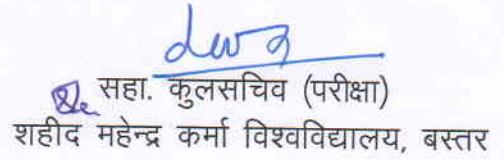 सहा. कुलसचिव (परीक्षा)
शहीद महेन्द्र कर्मा विश्वविद्यालय, बस्तर